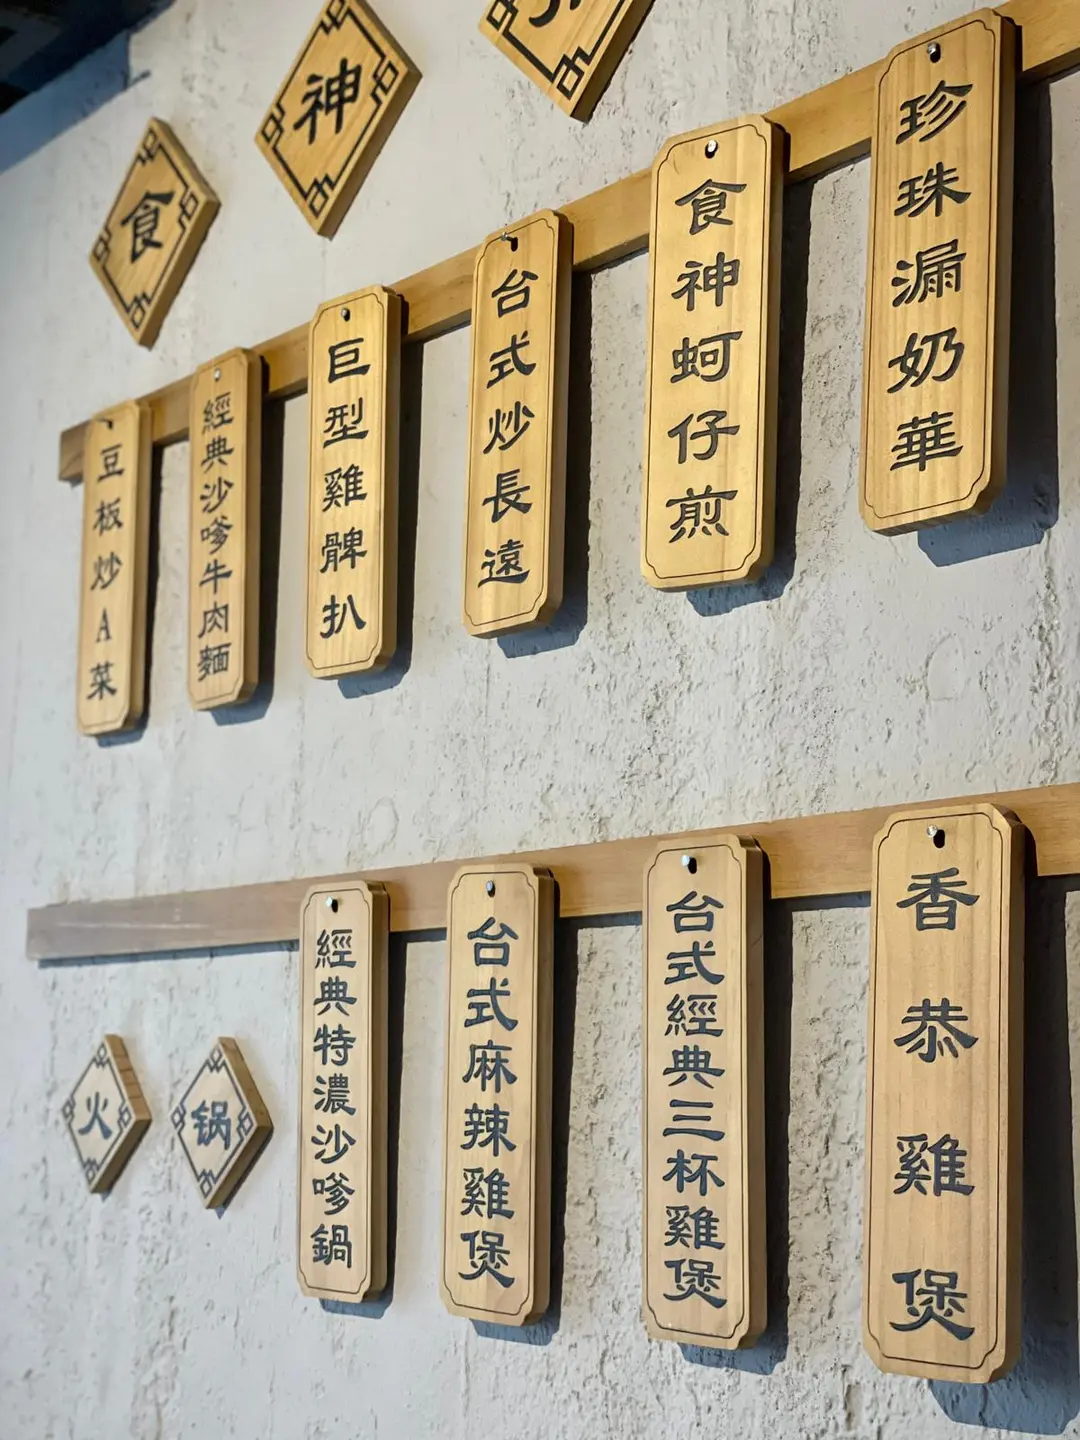 食神
豆板炒A菜
經典沙嗲牛肉麵
巨型雞髀扒
台式炒長遠
食神蚵仔煎
珍珠漏奶華
火锅
經典特濃沙嗲鍋
台式麻辣雞煲
台式經典三杯雞煲
香恭雞煲